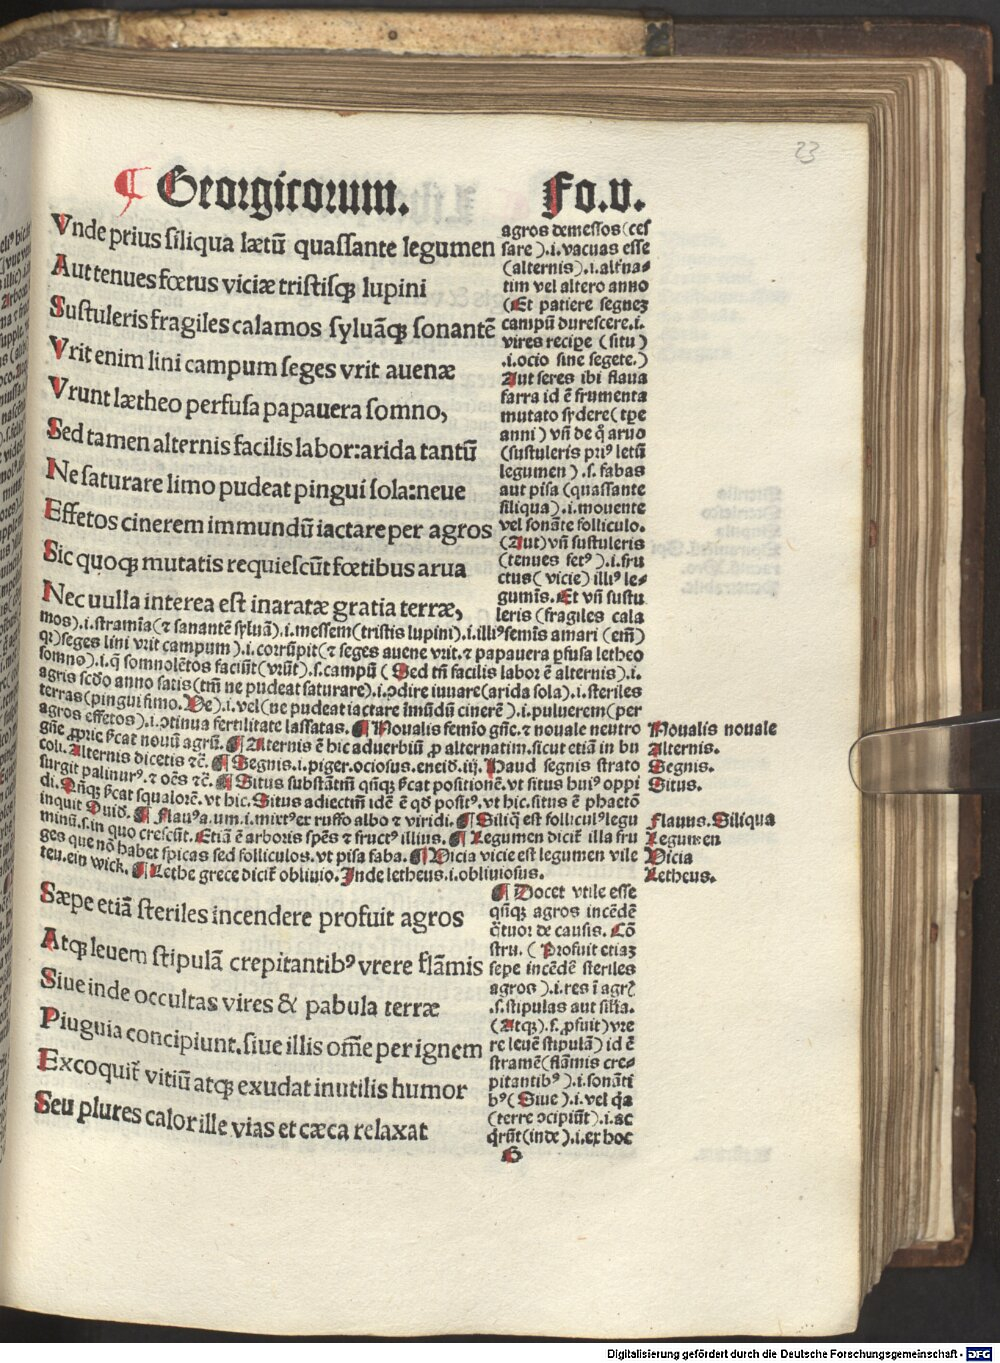 23
¶ Georgicorum. Fo.v.
Vnde prius siliqua lætũ quassante legumen
Aut tenues fœtus viciæ tristisqꝫ lupini
Sustuleris fragiles calamos syluãqꝫ sonantẽ
Vrit enim lini campum seges vrit auenæ
Vrunt lætheo perfusa papauera somno,
Sed tamen alternis facilis labor:arida tantũ
Ne saturare limo pudeat pingui sola:neue
Effetos cinerem immundũ iactare per agros
Sic quoqꝫ mutatis requiescũt fœtibus arua
Nec uulla interea est inaratæ gratia terræ,
agros demessos (ces
sare).i.vacuas esse
(alternis).i.alťna-
tim vel altero anno
(Et patiere segneꝫ
campũ durescere.i.
vires recipe (situ)
.i.ocio sine segete.)
Aut seres ibi flaua
farra id ẽ frumenta
mutato sydere (tꝑe
anni) vñ de q̃ aruo
(sustuleris priꝰ letũ
legumen).s.fabas
aut pisa (quassante
siliqua).i.mouente
vel sonãte folliculo.
(Aut) vñ sustuleris
(tenues fetꝰ).i.fru
ctus (vicie) illiꝰ le-
gumĩs. Et vñ sustu
leris (fragiles cala
mos).i.stramĩa (⁊ sanantẽ syluã).i.messem(tristis lupini).i.illiꝰ semĩs amari (em̃)
qꝛ)seges lini vrit campum).i.corrũpit(⁊ seges auene vrit.⁊ papauera ꝑfusa letheo
somno).i.q̃ somnolẽtos faciũt (vrũt).s.campũ (Sed tñ facilis labor ẽ alternis).i.
agris scďo anno satis(tm̃ ne pudeat saturare).i.ↄdire iuuare(arida sola).i.steriles
terras(pingui fimo. Ne).i.vel(ne pudeat iactare ĩmũdũ cinerẽ).i.puluerem(per
agros effetos).i.ↄtinua fertilitate lassatas. ¶ Noualis femĩo gñe.⁊ nouale neutro
gñe ꝓprie sĩcat nouũ agrũ. ¶ Alternis ẽ hic aduerbiũ ꝓ alternatim.sicut etiã in bu
coli. Alternis dicetis ⁊č. ¶ Segnis.i.piger.ociosus.eneid.iij. Haud segnis strato
surgit palinurꝰ.⁊ oẽs ⁊č. ¶ Situs substãtm̃ qñqꝫ sĩcat positionẽ.vt situs huiꝰ oppi
di. Qñqꝫ sĩcat squalorẽ.vt hic. Situs adiectm̃ idẽ ẽ qď positꝰ.vt hic.situs ẽ phaetõ
inquit Ouid. ¶ Flauꝰ.a.um.i.mixtꝰ ex russo albo ⁊ viridi. ¶ Siliq̃ est folliculꝰ legu
minũ.s.in quo crescũt. Etiã ẽ arboris spẽs ⁊ fructꝰ illius. ¶ Legumen dicit̃ illa fru
ges que nõ habet spicas sed folliculos.vt pisa faba. ¶ Vicia vicie est legumen vile
teu.ein wick. ¶ Lethe grece dicit̃ obliuio. Inde letheus.i.obliuiosus.
Noualis nouale
Alternis.
Segnis.
Situs.
Flauus. Siliqua
Legumen
Vicia
Letheus.
Sæpe etiã steriles incendere profuit agros
Atqꝫ leuem stipulã crepitantibꝰ vrere flãmis
Siue inde occultas vires & pabula terræ
Piuguia concipiunt.siue illis om̃e per ignem
Excoquit̃ vitiũ atqꝫ exudat inutilis humor
Seu plures calor ille vias et cæca relaxat
¶ Docet vtile esse
qñqꝫ agros incẽdẽ
q̃tuor de causis. Cõ
stru. (Profuit etiaꝫ
sepe incẽdẽ steriles
agros).i.res ĩ agrꝭ
.s.stipulas aut sil̃ia.
(Atqꝫ).s.ꝓfuit) vre
re leuẽ stipulã) id ẽ
stramẽ(flãmis cre-
pitantibꝰ).i.sonãti
bꝰ(Siue).i.vel q̃a
(terre ↄcipiũt).i.ac
q̃rũt(inde).i.ex hoc
G
Digitalisierung gefördert durch die Deutsche Forschungsgemeinschaft - DFG